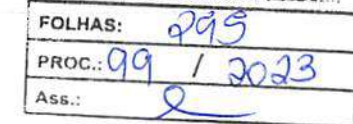 FOLHAS: 295
PROC.: 99 / 2023
Ass.: